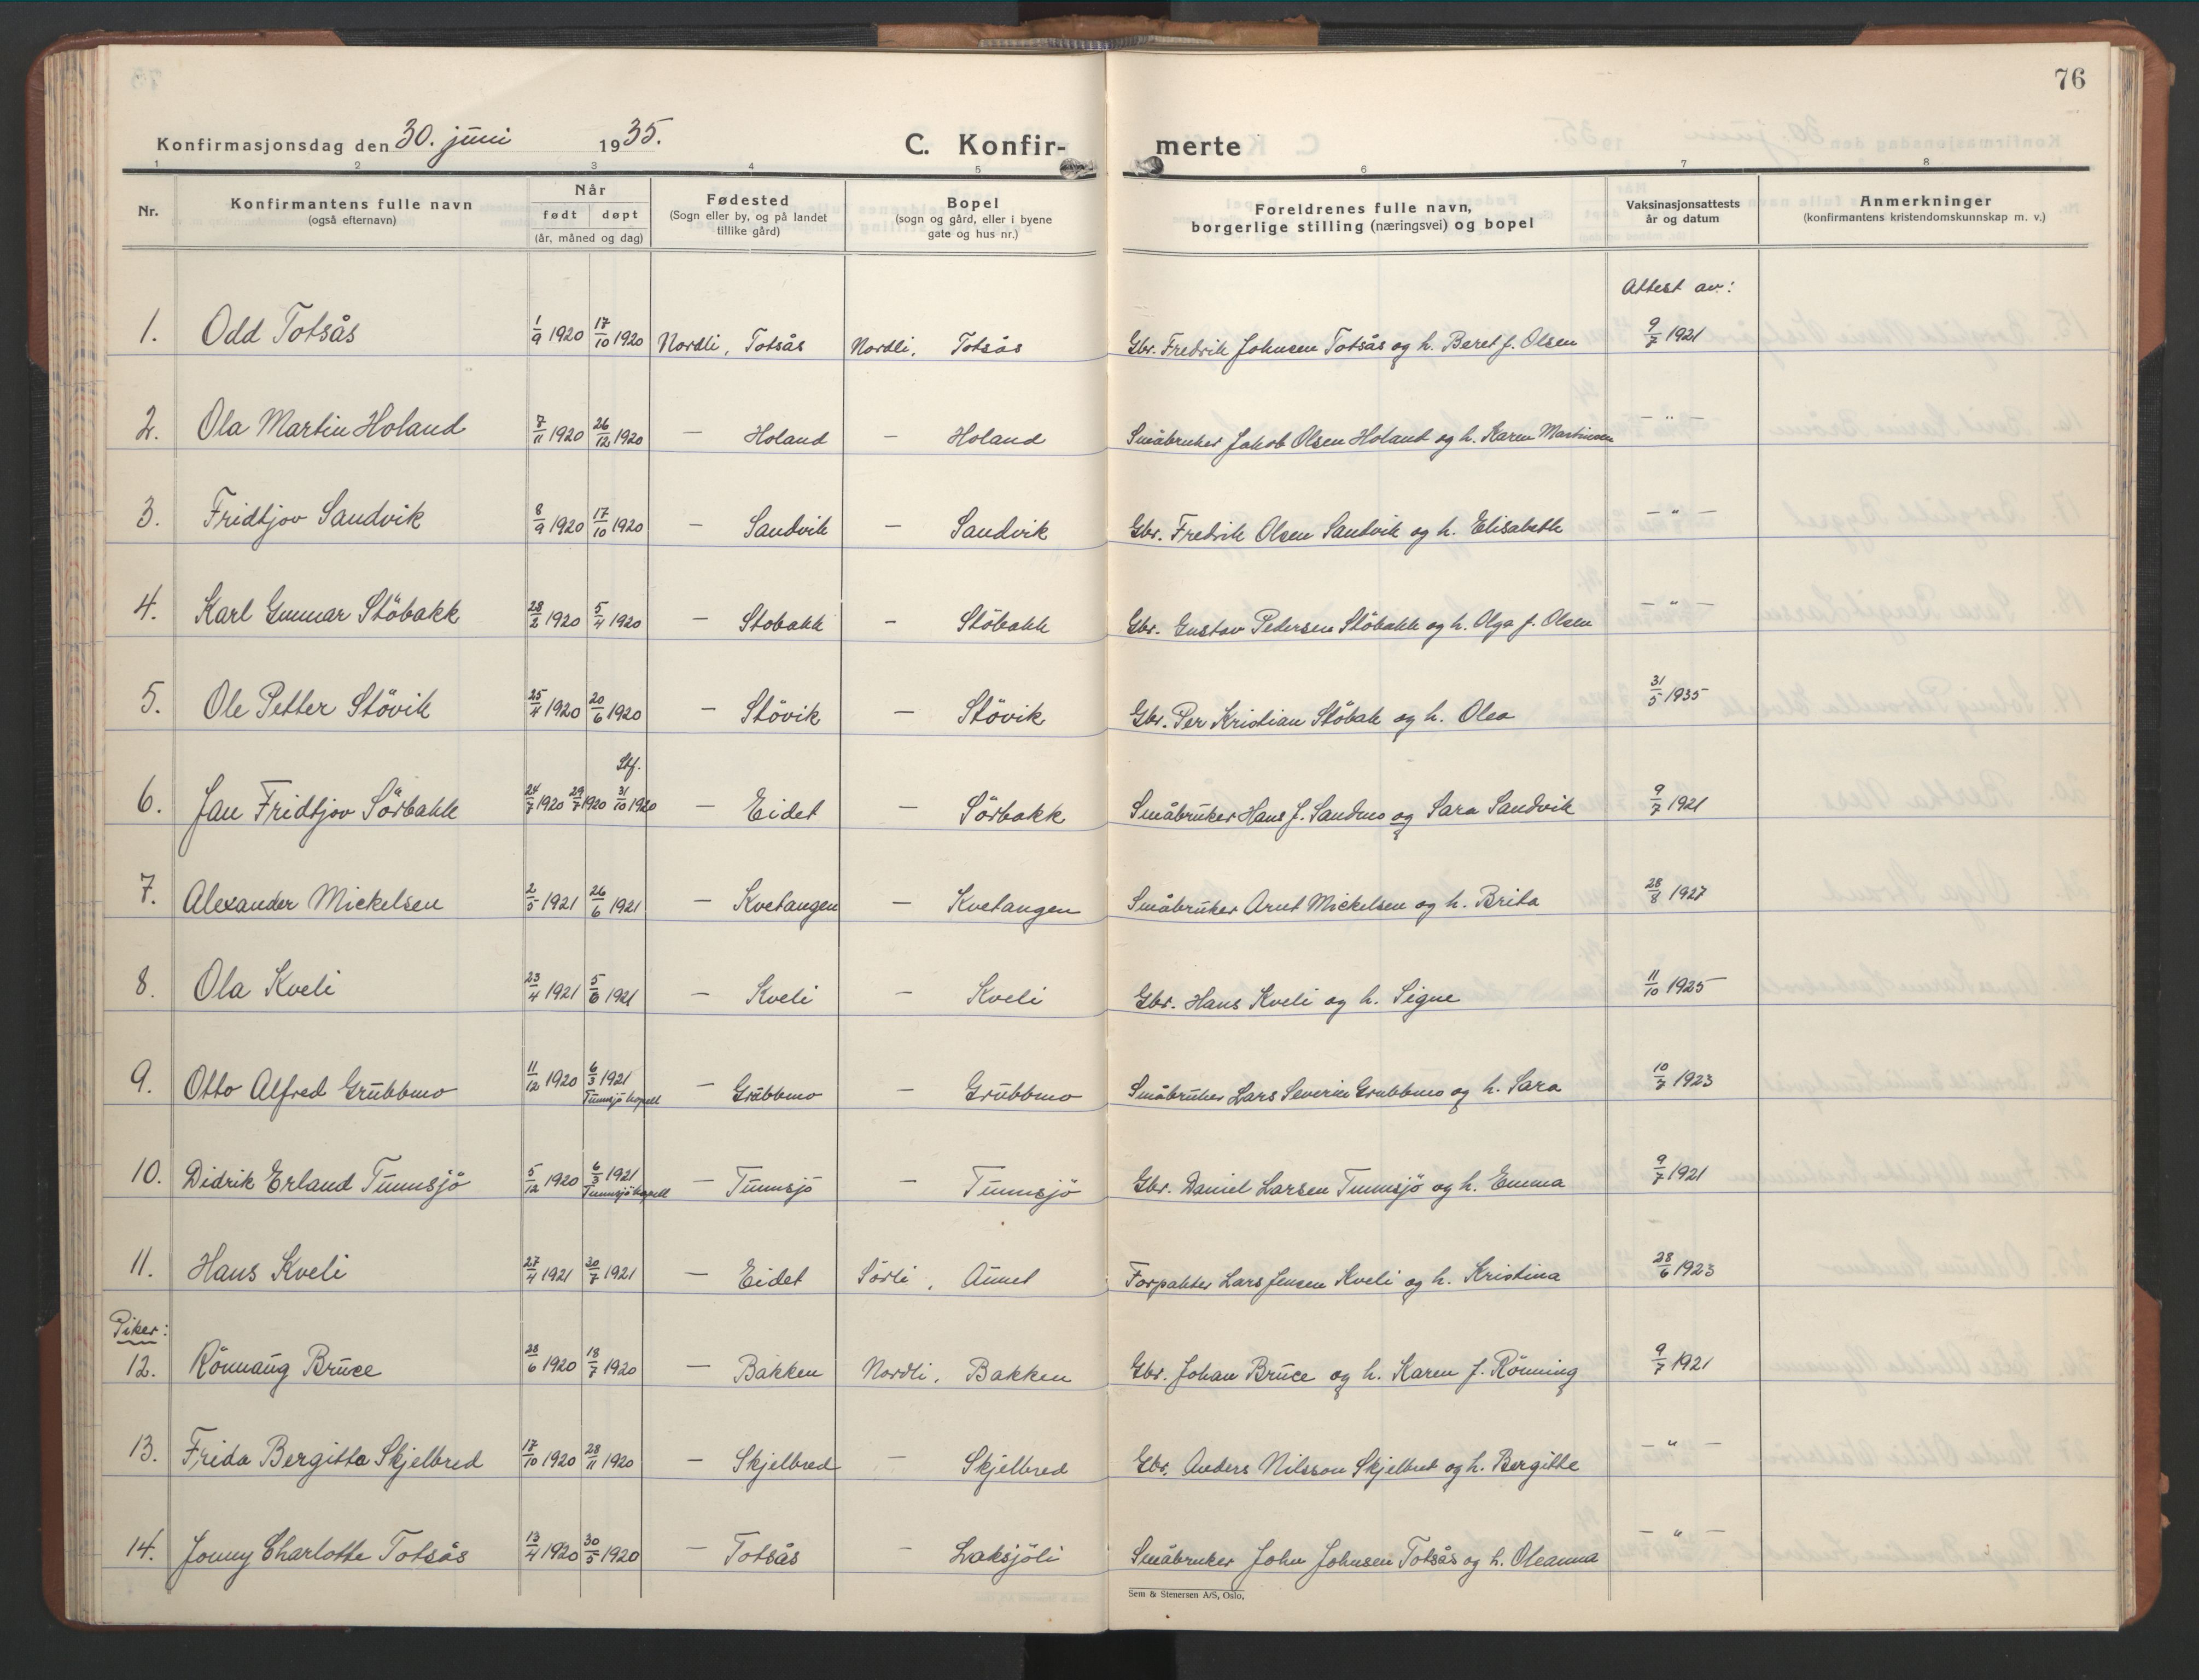 76
Konfirmasjonsdag den 30. juni 1935. C. Konfirmerte
1 2 3 4 5 6 7 8
Nr. Konfirmantens fulle navn (også efternavn) Når født døpt (år, måned og dag) Fødested (Sogn eller by, og på landet tillike gård) Bopel (sogn og gård, eller i byene gate og hus nr.) Foreldrenes fulle navn, borgerlige stilling (næringsvei) og bopel Vaksinasjonsattests år og datum Anmerkninger (konfirmantens kristendomskunnskap m. v.)
Attest av:
1. Odd Totsås 1/9 1920 17/10 1920 Nordli, Totsås Nordli, Totsås Gbr. Fredrik Johnsen Totsås og h. Beret f. Olsen 9/7 1921
2. Ola Martin Holand 7/11 1920 26/12 1920 — Holand — Holand Småbruker Jakob Olsen Holand og h. Karen Martinsen — " —
3. Fridtjov Sandvik 8/9 1920 17/10 1920 — Sandvik — Sandvik Gbr. Fredrik Olsen Sandvik og h. Elisabeth — " —
4. Karl Gunnar Stöbakk 28/2 1920 5/4 1920 — Stobakk — Stöbakk Gbr. Gustav Pedersen Stöbakk og h. Olga f. Olsen — " —
5. Ole Petter Stövik 25/4 1920 20/6 1920 — Stövik — Stövik Gbr. Per Kristian Stöbak og h. Olea 31/5 1935
Stf.
6. Jan Fridtjov Sörbakk 24/7 1920 29/7 1920 31/10 1920 — Eidet — Sörbakk Småbruker Hans J. Sandmo og Sara Sandvik 9/7 1921
7. Alexander Mickelsen 2/5 1921 26/6 1921 — Kvetangen — Kvetangen Småbruker Arnt Mickelsen og h. Brita 28/8 1927
8. Ola Kveli 23/4 1921 5/6 1921 — Kveli — Kveli Gbr. Hans Kveli og h. Signe 11/10 1925
9. Otto Alfred Grubbmo 11/12 1920 6/3 1921 Tunnsjö kapell — Grubbmo — Grubbmo Småbruker Lars Severin Grubbmo og h. Sara 10/7 1923
10. Didrik Erland Tunnsjö 5/12 1920 6/3 1921 Tunnsjö kapell — Tunnsjö — Tunnsjö Gbr. Daniel Larsen Tunnsjö og h. Emma 9/7 1921
11. Hans Kveli 27/4 1921 30/7 1921 — Eidet Sörli, Aunet Forpakter Lars Jensen Kveli og h. Kristina 28/6 1923
Piker:
12. Rönnaug Bruce 28/6 1920 18/7 1920 — Bakken Nordli, Bakken Gbr. Johan Bruce og h. Karen f. Rönning 9/7 1921
13. Frida Bergitta Skjelbred 17/10 1920 28/11 1920 — Skjelbred — Skjelbred Gbr. Anders Nilsson Skjelbret og h. Bergitte — " —
14. Jonny Charlotte Totsås 13/4 1920 30/5 1920 — Totsås — Laksjöli Småbruker John Johnsen Totsås og h. Oleanna — " —
Sem & Stenersen A/S, Oslo,